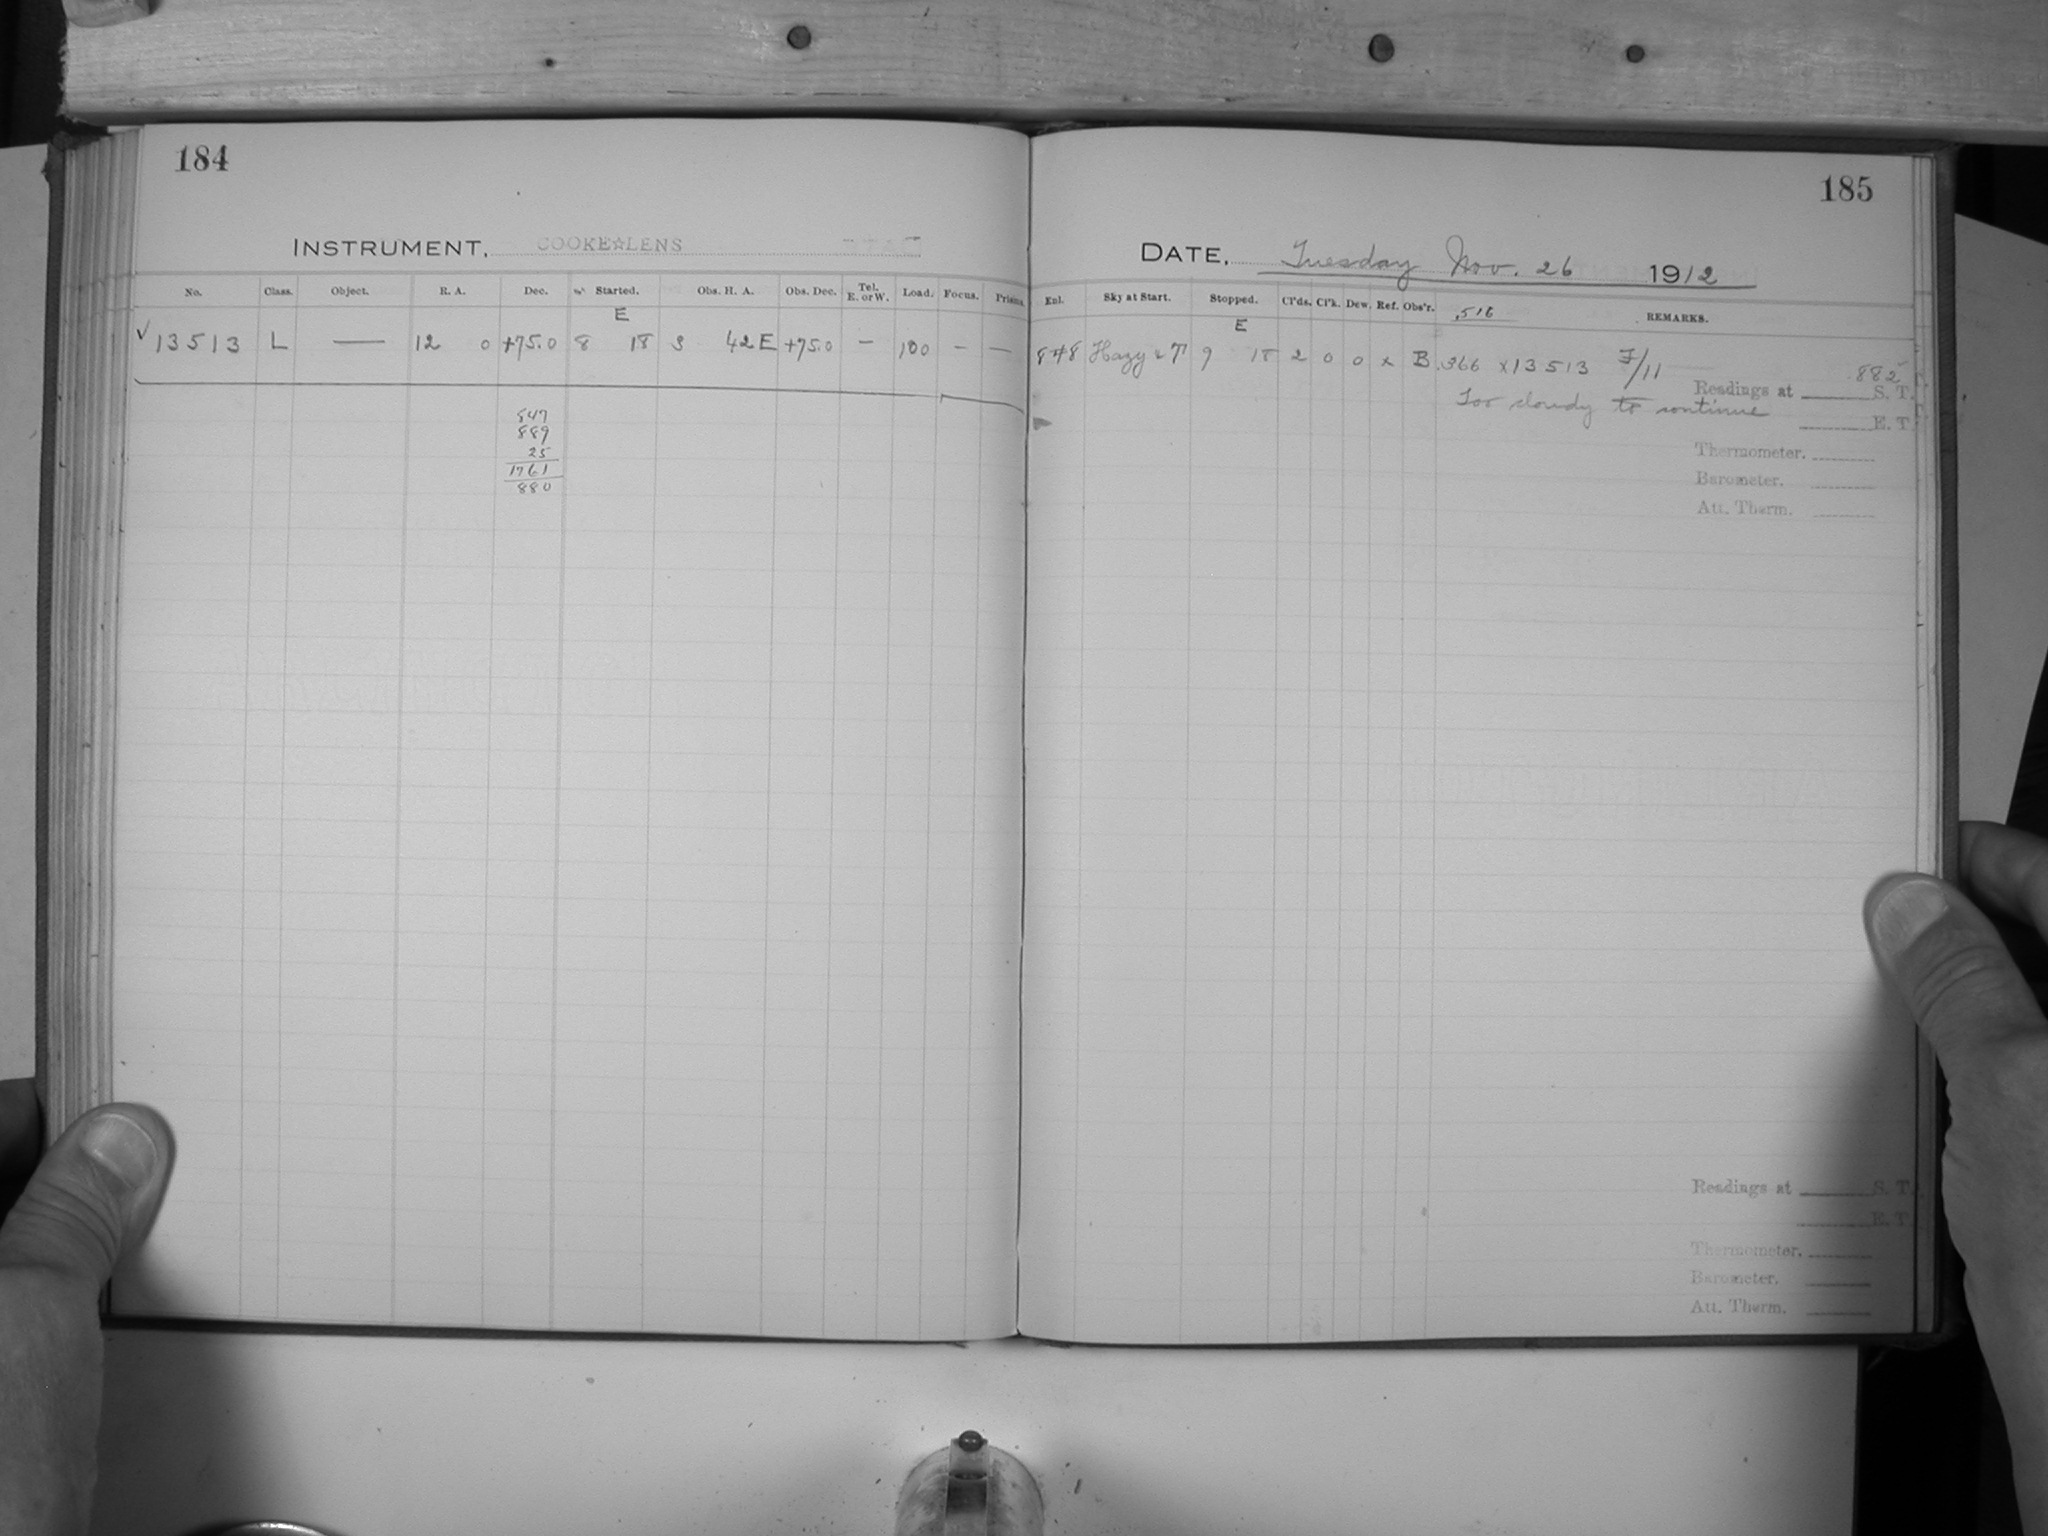 184
INSTRUMENT, COOKE☆LENS
No. Class. Object. R. A. Dec. Started. Obs. H. A. Obs. Dec. Tel. E. or W. Load. Focus. Prisms.
E
√ 13513 L — 12 0 +75.0 8 18 3 42 E +75.0 — 100 — —
847
889
25
1761
880
185
DATE, Tuesday Nov. 26 1912
Enl. Sky at Start. Stopped. Cl'ds. Cl'k. Dew. Ref. Obs'r. .516 REMARKS.
E
Hazy & 9 18 2 0 0 x B .366 x13513 F/11 882
Readings at S. T.
Too cloudy to continue
E. T.
Thermometer.
Barometer.
Att. Therm.
Readings at S. T.
E. T.
Thermometer.
Barometer.
Att. Therm.